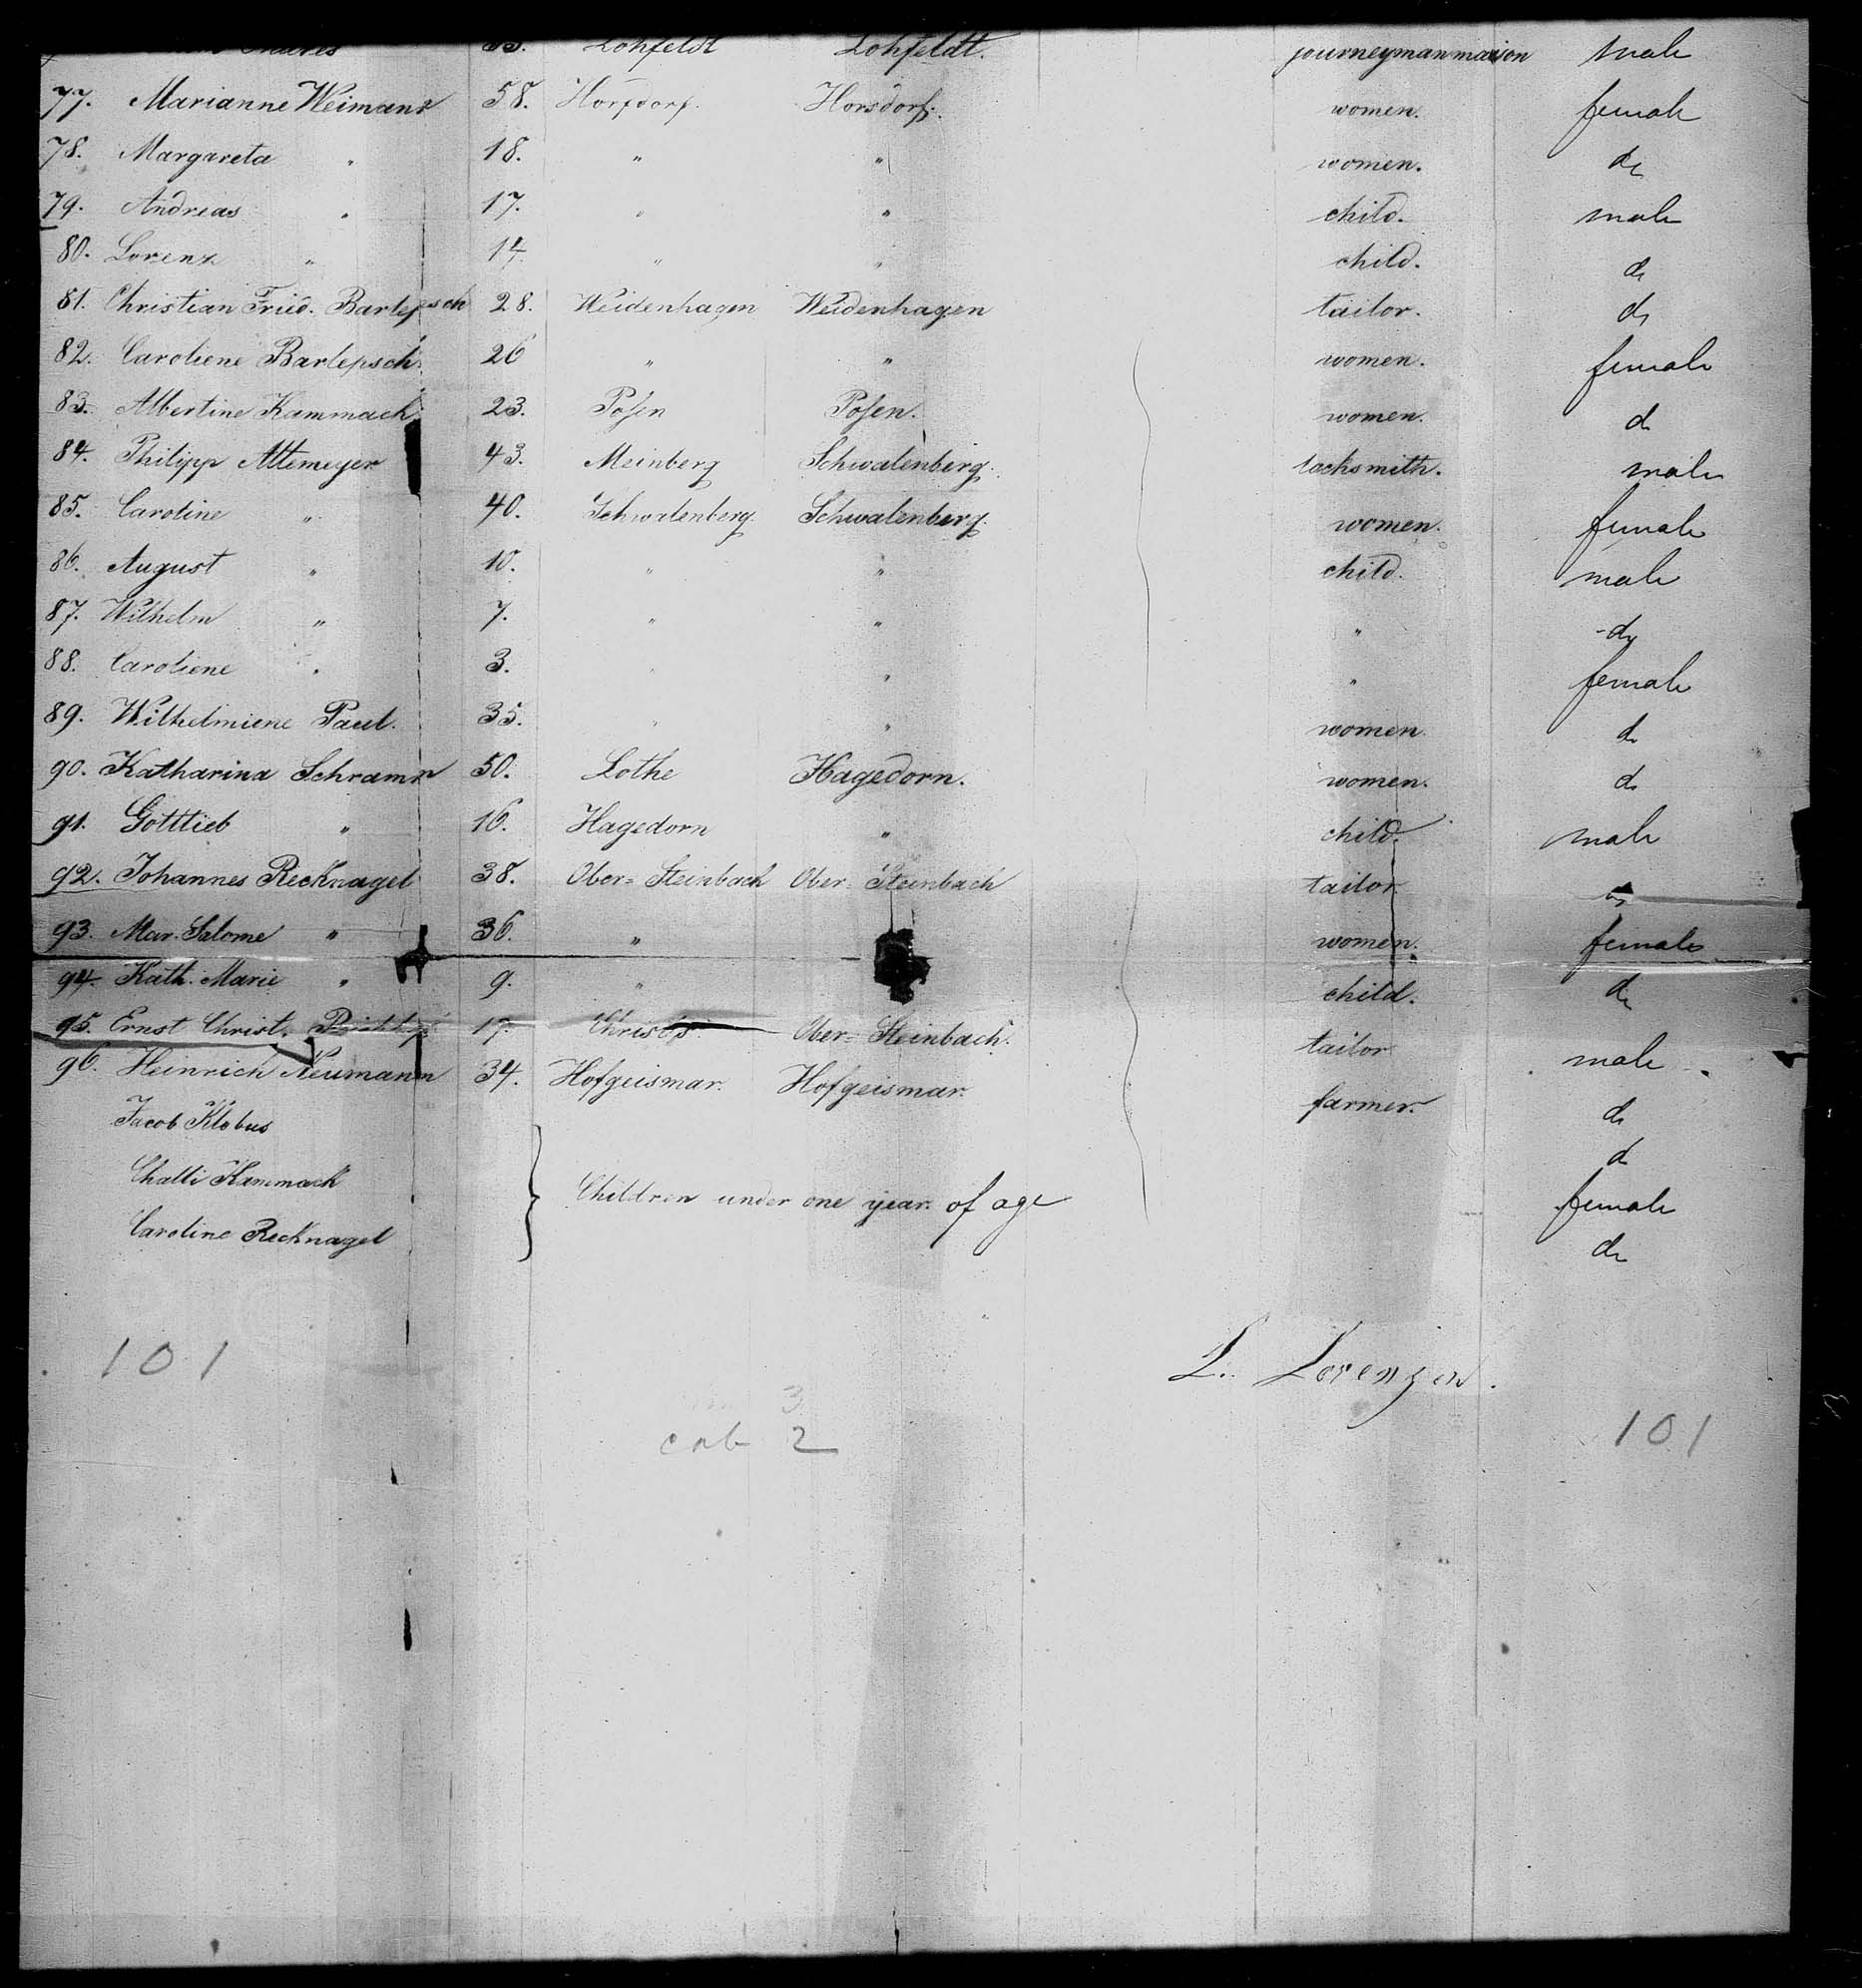 Lohfeldt Lohfeldt. journeyman mason male
77. Marianne Weimann 58. Horsdorf. Horsdorf. women. female
78. Margareta " 18. " " women. do
79. Andreas " 17. " " child. male
80. Lorenz " 14. " " child. do
81. Christian Fried. Barlepsch 28. Weidenhagen Weidenhagen tailor. do
82. Caroliene Barlepsch. 26 " " women. female
83. Albertine Kammach 23. Posen Posen. women. do
84. Philipp Altemeyer 43. Meinberg Schwalenberg. locksmith. male
85. Caroline " 40. Schwalenberg. Schwalenberg. women. female
86. August " 10. " " child. male
87. Wilhelm " 7. " " " do
88. Caroliene " 3. " " " female
89. Wilhelmiene Paul. 35. " " women. do
90. Katharina Schramm 50. Lothe Hagedorn. women. do
91. Gottlieb " 16. Hagedorn " child. male
92. Johannes Recknagel 38. Ober=Steinbach Ober=Steinbach tailor. do
93. Mar. Salome " 36. " women. female
94. Kath. Marie " 9. " child. do
95. Ernst Christ. 17. Ober=Steinbach. tailor male
96. Heinrich Neumann 34. Hofgeismar. Hofgeismar. farmer. do
Jacob Klobus do
Chatti Kammach } Children under one year of age female
Caroline Recknagel do
101
L. Lorenzen.
3
cab 2
101